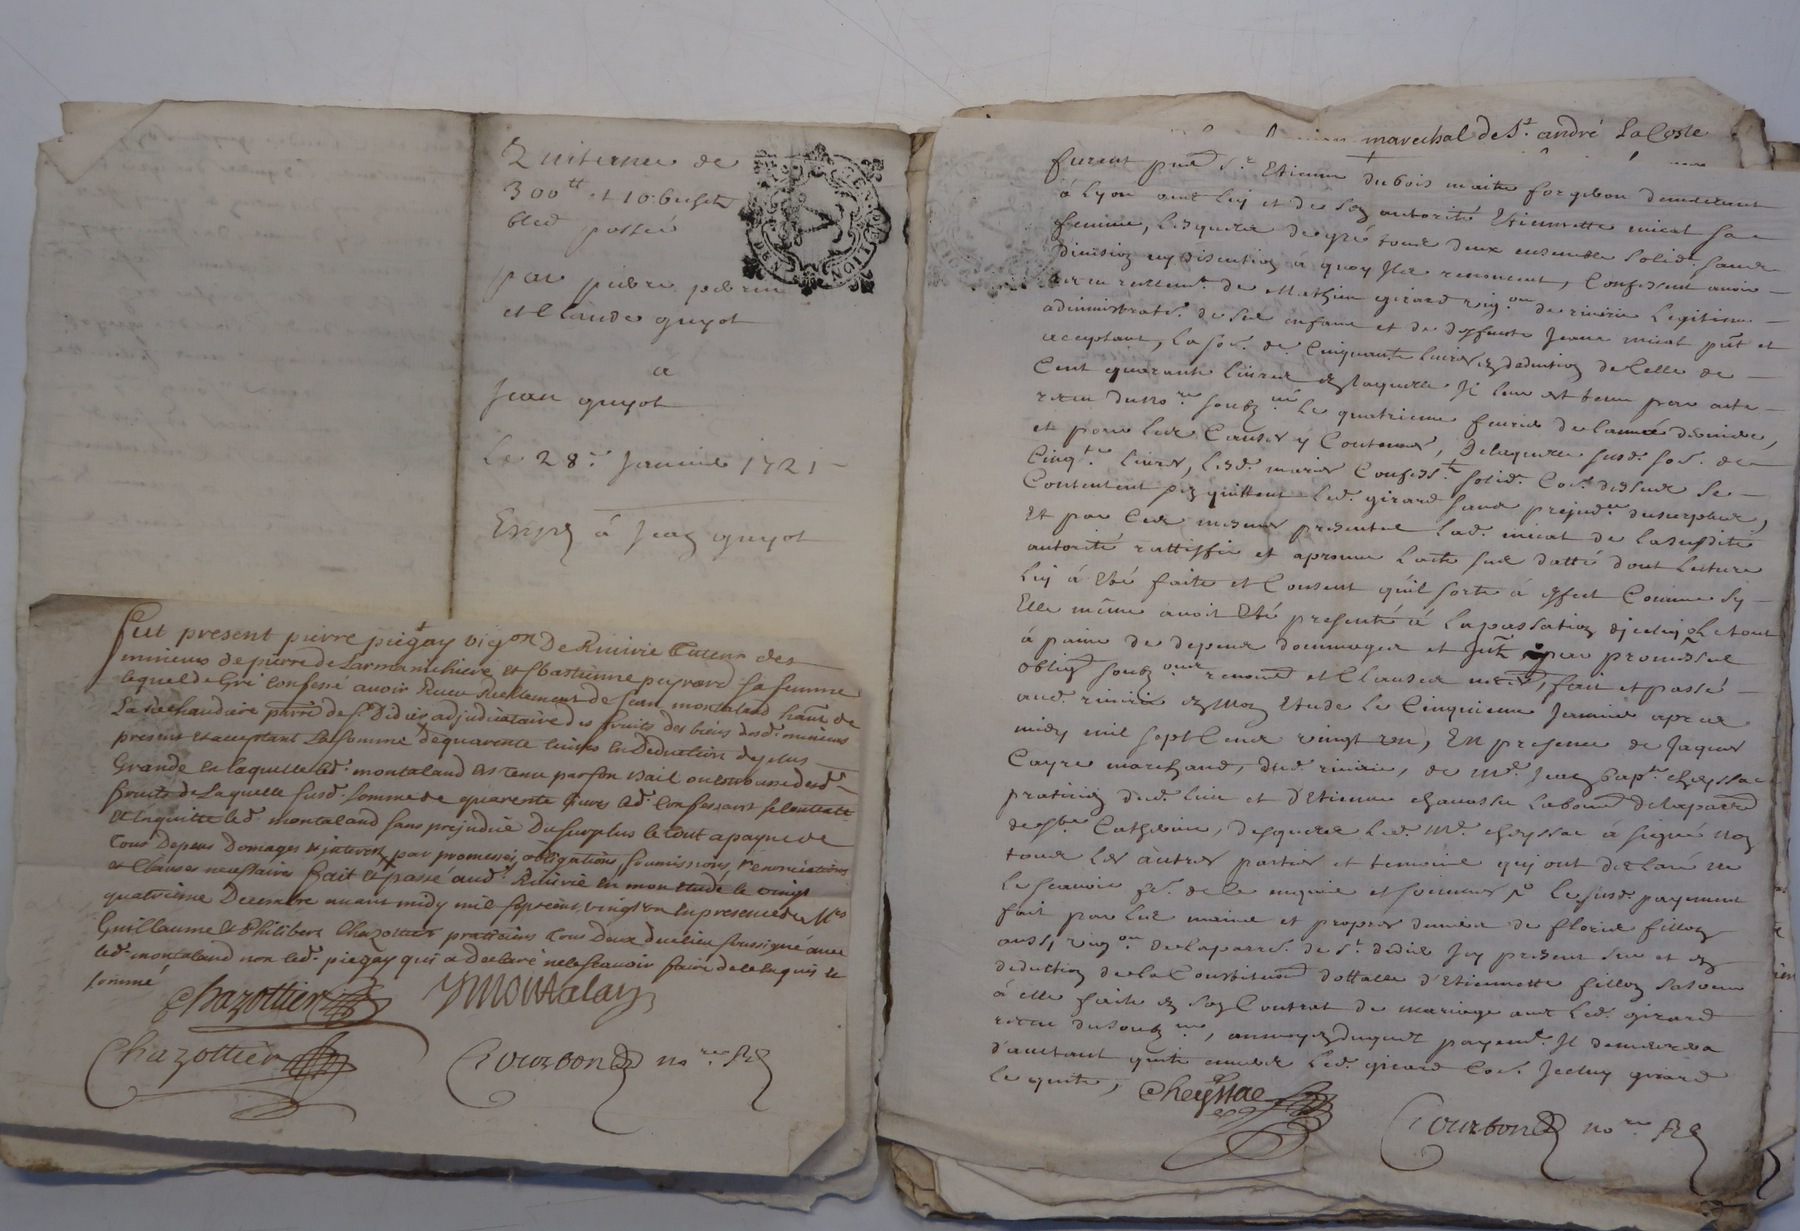 Quittance de
300tt et 10 bichets
bled passée
par pierre perrin
et Claude guyot
a
Jean guyot
Le 28e Janvier 1721
Exp à Jean guyot
GEN. DE LION
Fut present pierre piegay vigon De Rivirie Tuteur des
mineurs de pierre de Larmanchiere et sbastienne peyrard sa femme
lequel de Gré confesse avoir Receu Reellement de Jean montaland habt de
La Rechaudiere parre de st Didier adjudicataire des fruits des biens desd. mineurs
present et acceptant La somme de quarente livres en Deduction de plus
Grande en laquelle led. montaland est tenu par son bail ou desd.
fruits de Laquelle susd. somme de quarente livres led. confessant se contente
et en quitte led. montaland sans prejudice Du surplus le tout a payne de
Tous Depens Domages et interest par promesses, obligations, soumissions, renonciations
et Clauses necessaires fait et passé aud. Rivirie en mon etude le vingt
quatrieme Decembre avant midy mil sept cent vingt un en presence de Mes
Guillaume et Philibert Chazottier praticiens Tous Deux dud. lieu soussignés avec
led. montaland non led. piegay qui a Declaré ne le scavoir faire de ce enquis et
sommé
Chazottier JMontaland
Chazottier Gourbond nore Rl
marechal de St. andré La Coste
furent pnts Sr. Etienne dubois maitre forgeron demeurant
à Lyon et de son autorité Etiennette micat sa
femme, Lesquels de gré tous deux ensemble solid. sans
division ny discution à quoy Ils renoncent, Confessent avoir
receu reellemt. de Mathieu girard vigon de rivirie Legitime
administrateur. de ses enfans et de deffunte Jeane micat pnt et
acceptant, La som. de Cinquante livres en deduction de Celle de
Cent quarante livres en laquelle Il leur est tenu par acte
receu du nore soubz.né le quatrieme fevrier de lannée derniere,
et pour les Causes y Contenues, De laquelle susd. som. de
Cinqte livres, Lesd. mariés Confesst. solid. Co. dessus se
Contentent et en quittent Led. girard sans prejud.ce du surplus,
Et par Ces mesmes presentes Lad. micat de La susditte
autorité rattiffie et aprouve Lacte sus datté dont Lecture
Luy à été faitte et Consent qu'il sorte à effect Comme sy
Elle même avoit été presente à La passation dicelluy Le tout
à paine de depens dommages et Intz par promesses
oblig. soubz.ons renons et Clauses neces, fait et passé
aud. rivirie en mon Etude Le Cinquieme Janvier apres
midy mil sept Cens vingt un, En presence de Jaques
Cayre marchand, dud. rivirie, de Me. Jean Bapte. cheyssac
praticien dud. lieu et d'Etienne chavassu Laboureur de la parre
de Ste Catherine, desquels Led. Me. cheyssac à signé non
tous Les autres parties et temoins qui ont declaré ne
Le scavoir fe. de ce enquis et sommés Le susd. payement
fait par Les mains et propres deniers de florie fillon
aussi vigon de La parre. de St. didier Icy present sur et en
deduction de La Constitution dottalle d'Etiennette fillon sa soeur
à elle faite en son Contrat de mariage avec Led. girard
receu du soubz.né, au moyen duquel payemt. Il demeurera
d'autant quitte envers Led. girard Co. Icelluy girard
le quitte,
Cheyssac
Gourbond nore Rl